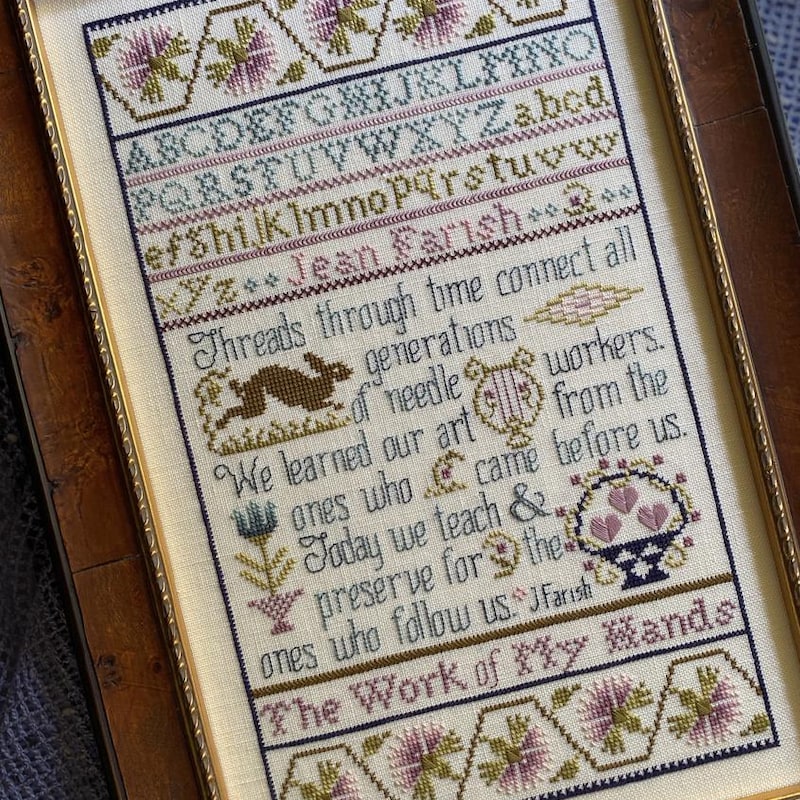 ABCDEFGHIJKLMNO
PQRSTUVWXYZabcd
efghijklmnopqrstuvw
xyz Jean Farish
Threads through time connect all
generations
of needle workers.
We learned our art from the
ones who came before us.
Today we teach &
preserve for the
ones who follow us. J Farish
The Work of My Hands